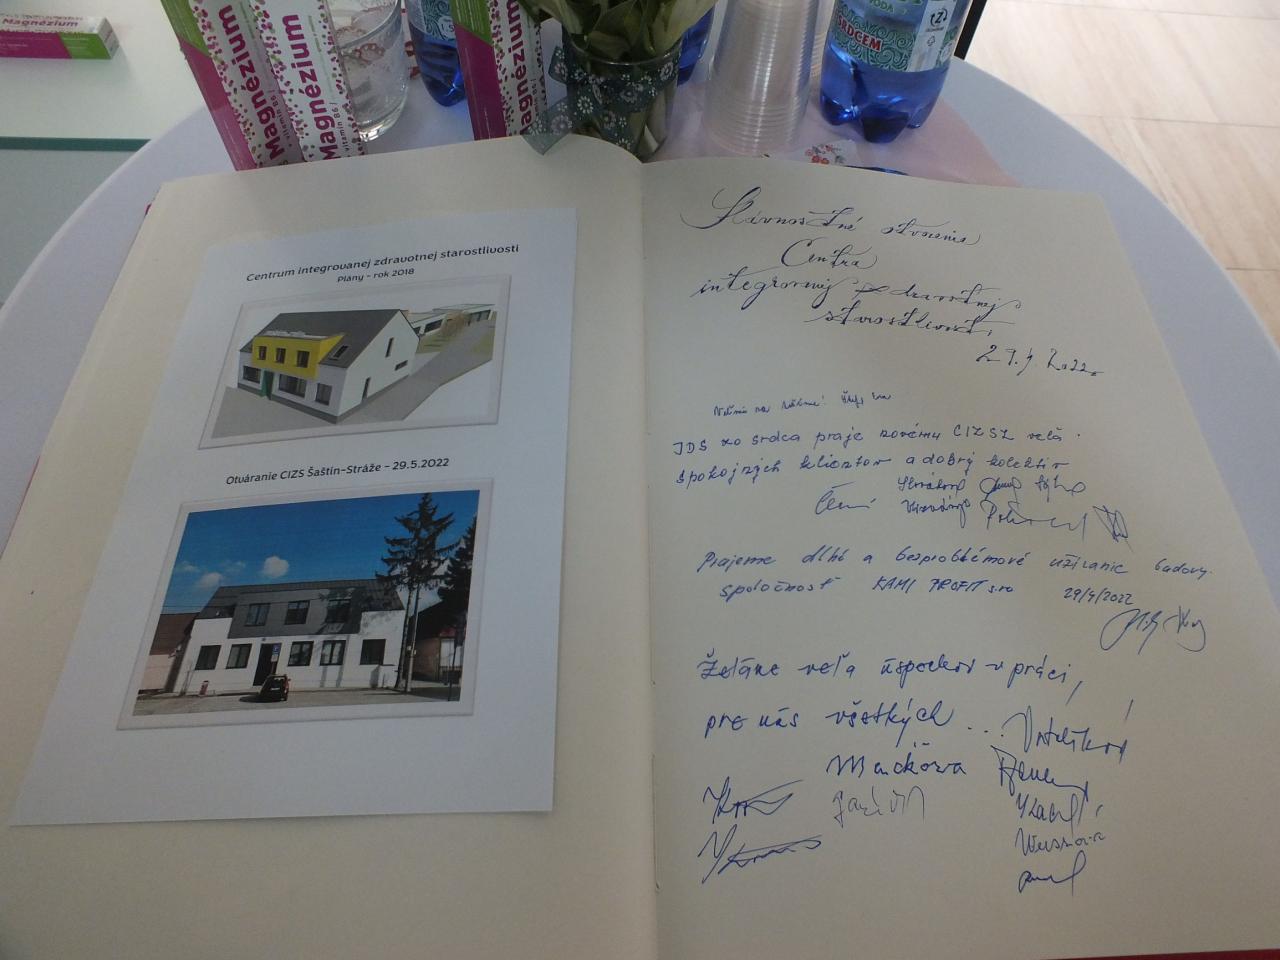 Magnézium
Magnézium
vitamín B6
Magnézium
Magnézium
vitamín B6
VODA
SRDCEM
Centrum integrovanej zdravotnej starostlivosti
Plány - rok 2018
Otváranie CIZS Šaštín-Stráže - 29.5.2022
Slávnostné otvorenie
Centra
integrovanej zdravotnej
starostlivosti
29.4.2022
JDS zo srdca praje novému CIZS veľa
spokojných klientov a dobrý kolektív
Prajeme dlhé a bezproblémové užívanie budovy
spoločnosť KAMI PROFIT s.r.o 29/4/2022
Želáme veľa úspechov v práci,
pre nás všetkých ...